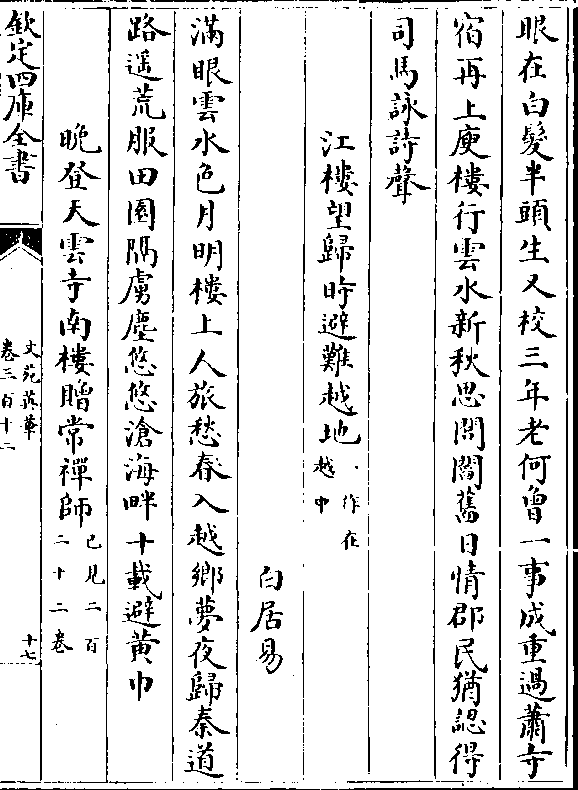 眼在白髮半頭生又校三年老何曾一事成重過蕭寺
宿再上庾樓行雲水新秋思閭閻舊日情郡民猶認得
司馬詠詩聲
江樓望歸時避難越地一作在越中
白居易
滿眼雲水色月明樓上人旅愁春入越鄉夢夜歸秦道
路遥荒服田園隔虜塵悠悠滄海畔十載避黄巾
晚登天雲寺南樓贈常禪師已見二百二十二卷
欽定四庫全書
文苑英華
卷三百十二
十七